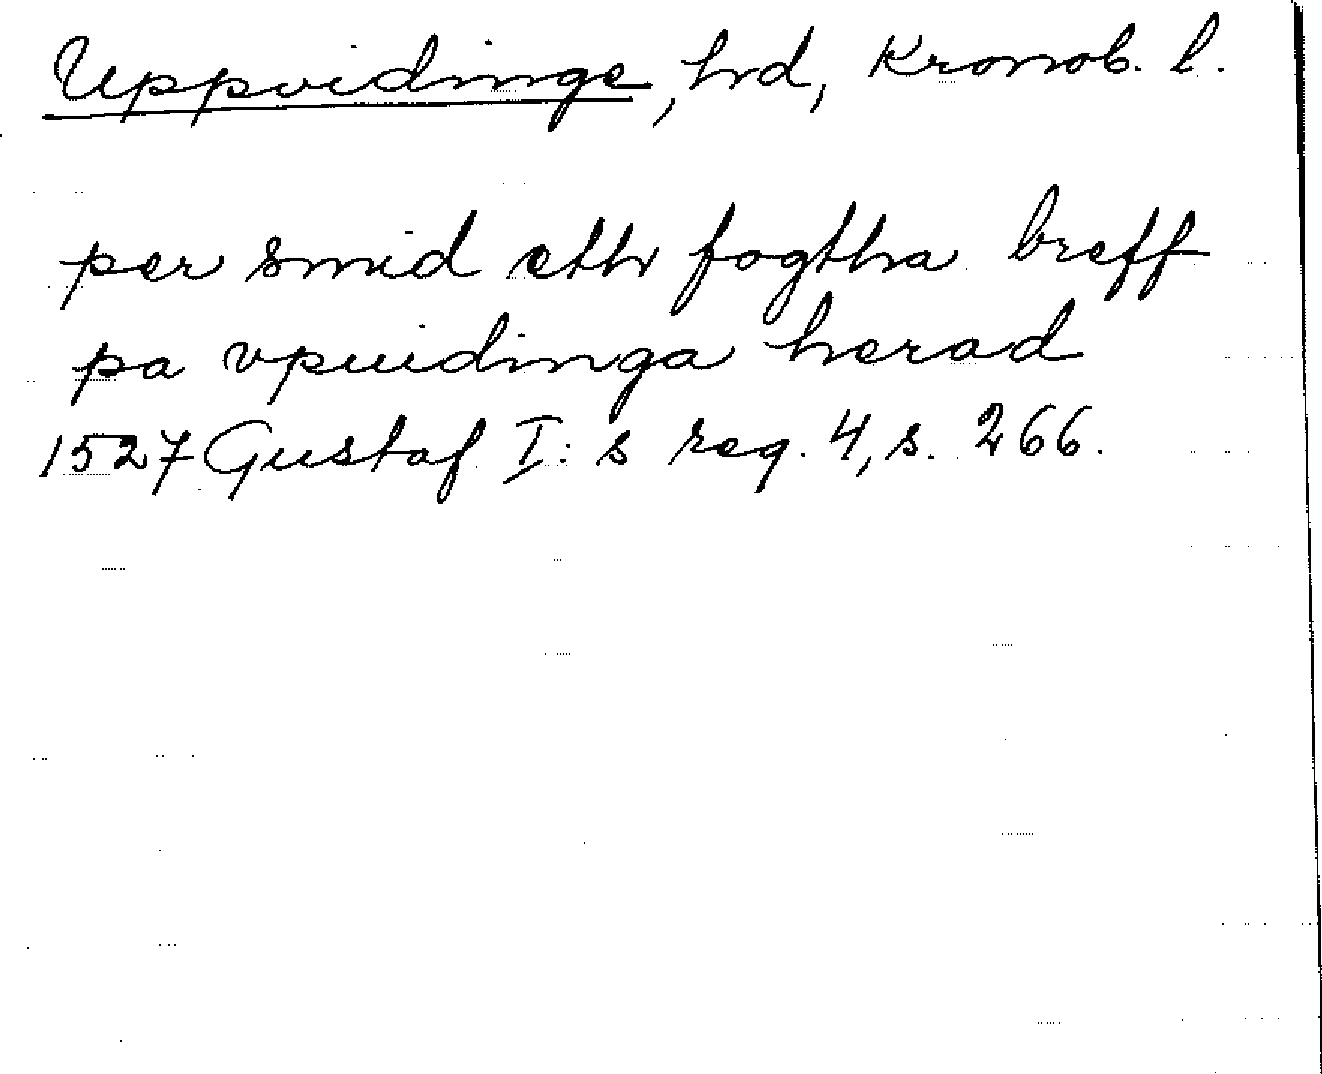 Uppvidinge, hrd, Kronob. l.
per smid eth fogtha breff
pa vpuidinga herad
1527 Gustaf I:s reg. 4, s. 266.